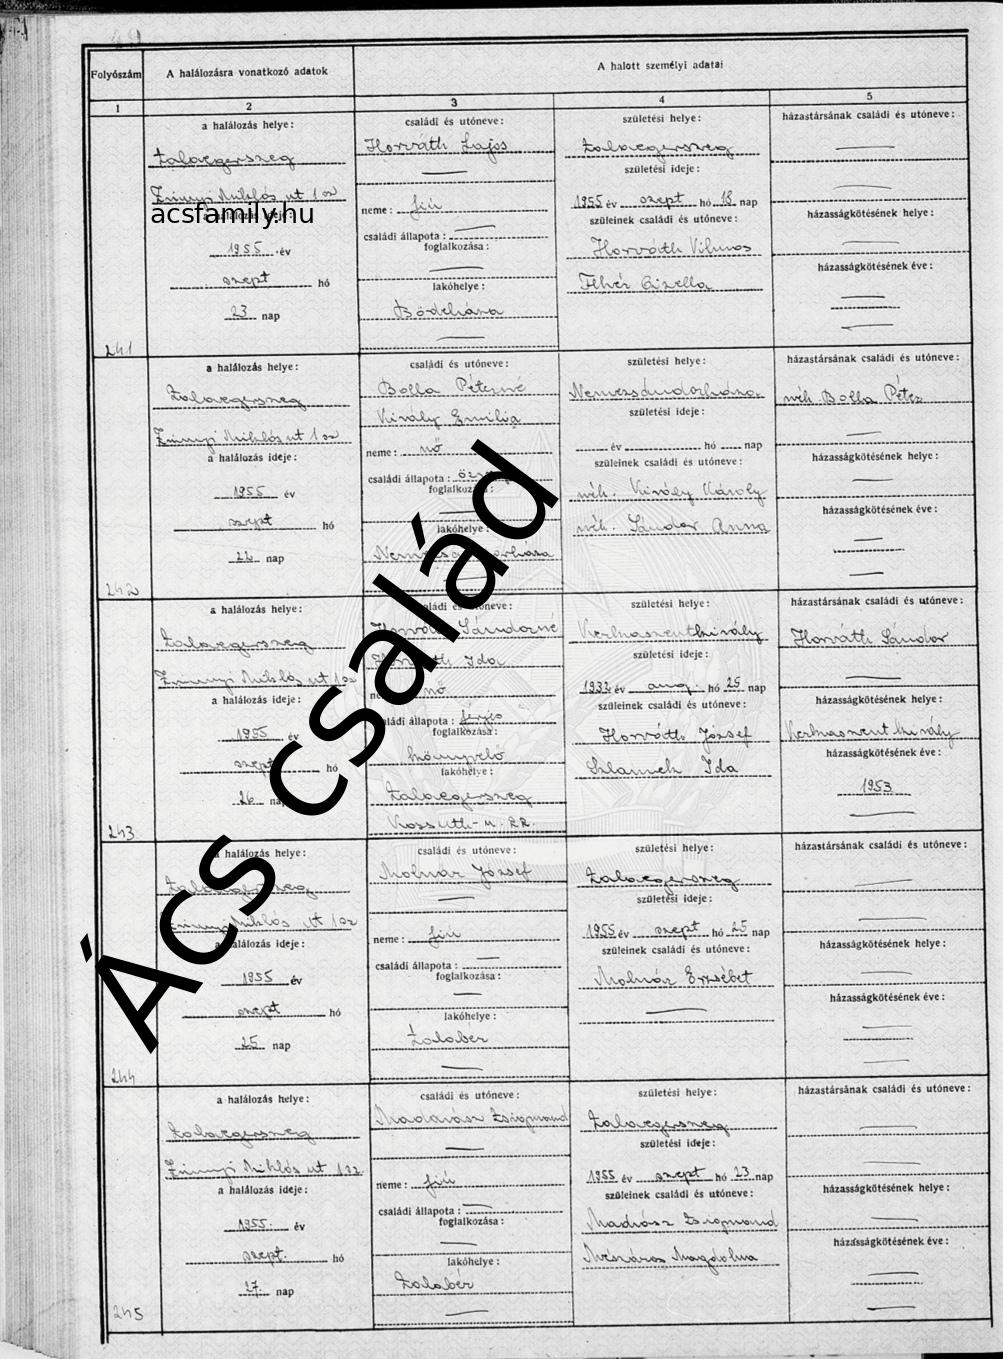 49
Folyószám
A halálozásra vonatkozó adatok
A halott személyi adatai
1
2
3
4
5
a halálozás helye:
Zalaegerszeg
Zrinyi Miklós ut 102
acsfamily.hu
a halálozás ideje:
1955 év
szept hó
23 nap
241
családi és utóneve:
Horváth Lajos
neme: fiú
családi állapota:
foglalkozása:
lakóhelye:
Bödeháza
születési helye:
Zalaegerszeg
születési ideje:
1955 év szept hó 18 nap
szüleinek családi és utóneve:
Horváth Vilmos
Fehér Gizella
házastársának családi és utóneve:
házasságkötésének helye:
házasságkötésének éve:
a halálozás helye:
Zalaegerszeg
Zrinyi Miklós ut 102
a halálozás ideje:
1955 év
szept hó
nap
242
családi és utóneve:
Bolla Péterné
Király Emilia
neme: nő
családi állapota:
foglalkozása:
lakóhelye:
születési helye:
Nemessándorháza
születési ideje:
év hó nap
szüleinek családi és utóneve:
néh. Király Károly
néh. Sándor Anna
házastársának családi és utóneve:
néh Bolla Péter
házasságkötésének helye:
házasságkötésének éve:
a halálozás helye:
Zalaegerszeg
Zrinyi Miklós ut 102
a halálozás ideje:
1955 év
szept hó
26 nap
243
családi és utóneve:
Horváth Sándorné
Horváth Ida
neme: nő
családi állapota: férjes
foglalkozása:
könyvelő
lakóhelye:
Zalaegerszeg
Kossuth u. 22.
születési helye:
Kerkaszentkirály
születési ideje:
1932 év aug hó 25 nap
szüleinek családi és utóneve:
Horváth József
Ida
házastársának családi és utóneve:
Horváth Sándor
házasságkötésének helye:
Kerkaszentkirály
házasságkötésének éve:
1953
a halálozás helye:
Zalaegerszeg
Zrinyi Miklós ut 102
a halálozás ideje:
1955 év
szept hó
25 nap
244
családi és utóneve:
Molnár József
neme: fiú
családi állapota:
foglalkozása:
lakóhelye:
Zalabér
születési helye:
Zalaegerszeg
születési ideje:
1955 év szept hó 25 nap
szüleinek családi és utóneve:
Molnár Erzsébet
házastársának családi és utóneve:
házasságkötésének helye:
házasságkötésének éve:
a halálozás helye:
Zalaegerszeg
Zrinyi Miklós ut 122
a halálozás ideje:
1955. év
szept. hó
27. nap
245
családi és utóneve:
Madarász Zsigmond
neme: fiú
családi állapota:
foglalkozása:
lakóhelye:
Zalabér
születési helye:
Zalaegerszeg
születési ideje:
1955 év szept hó 23 nap
szüleinek családi és utóneve:
Madrász Zsigmond
Mészáros Magdolna
házastársának családi és utóneve:
házasságkötésének helye:
házasságkötésének éve:
Ács család